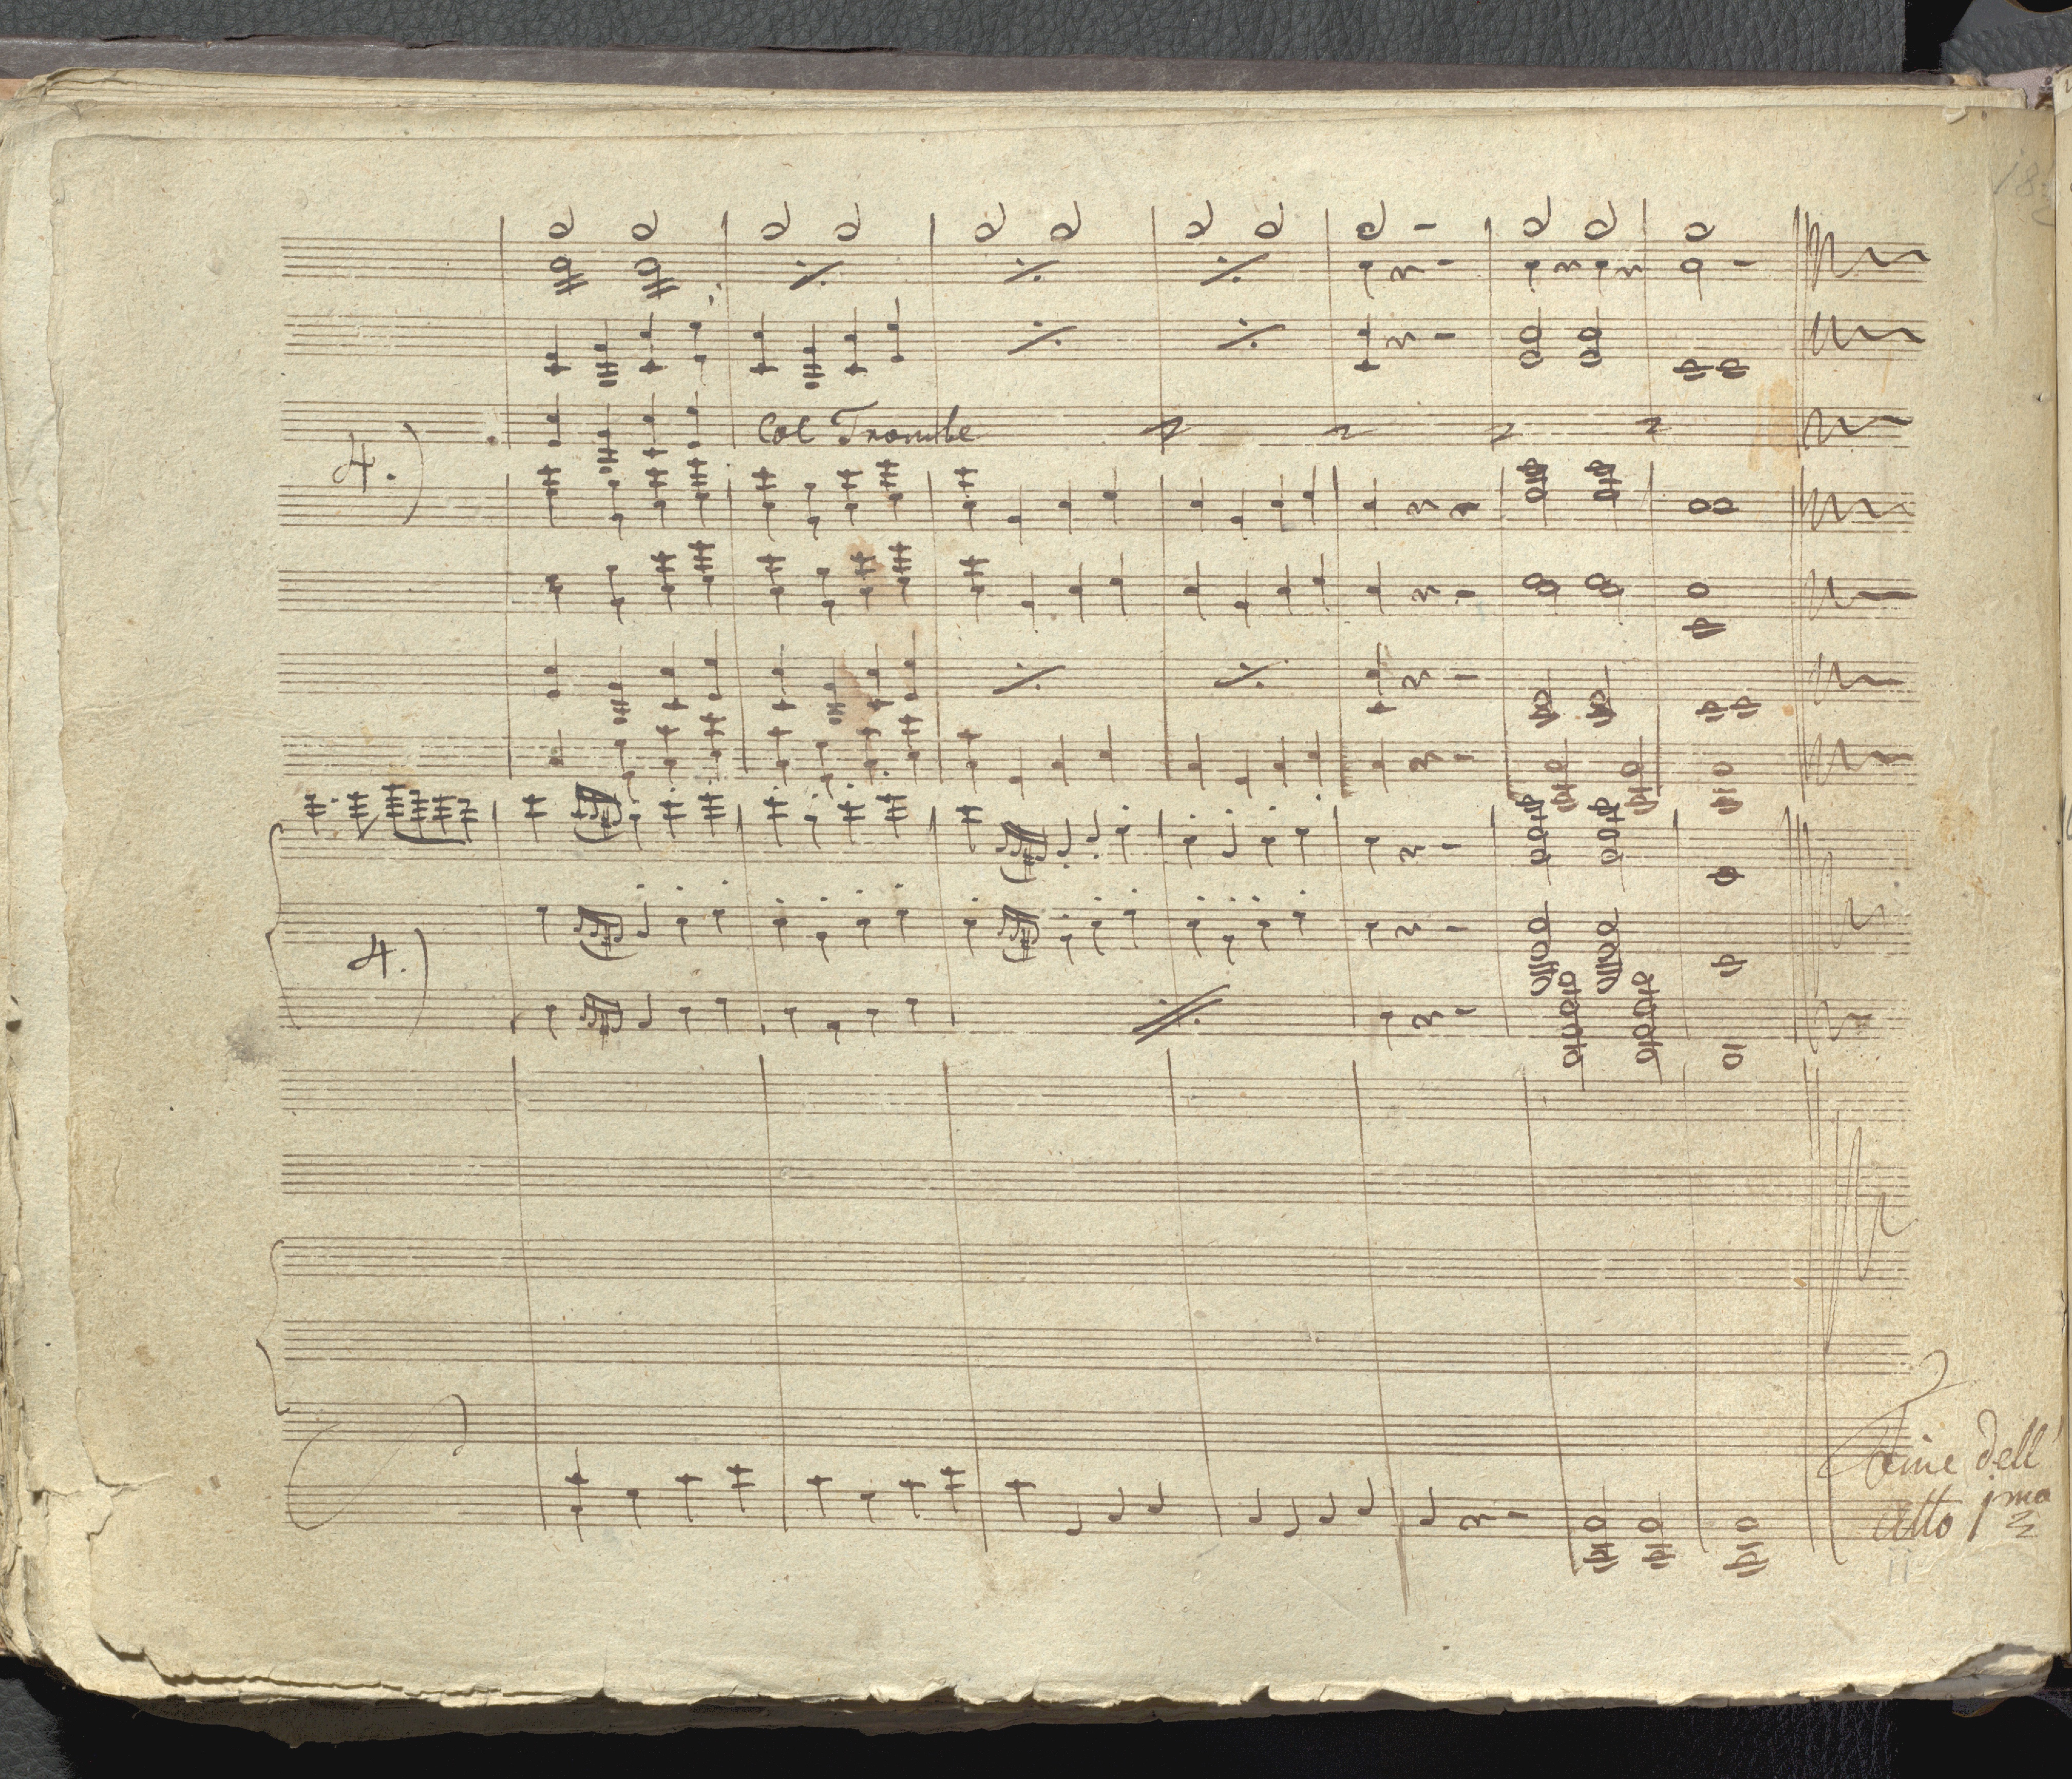 4.)
Col Trombe
4.)
Fine dell'
atto 1mo